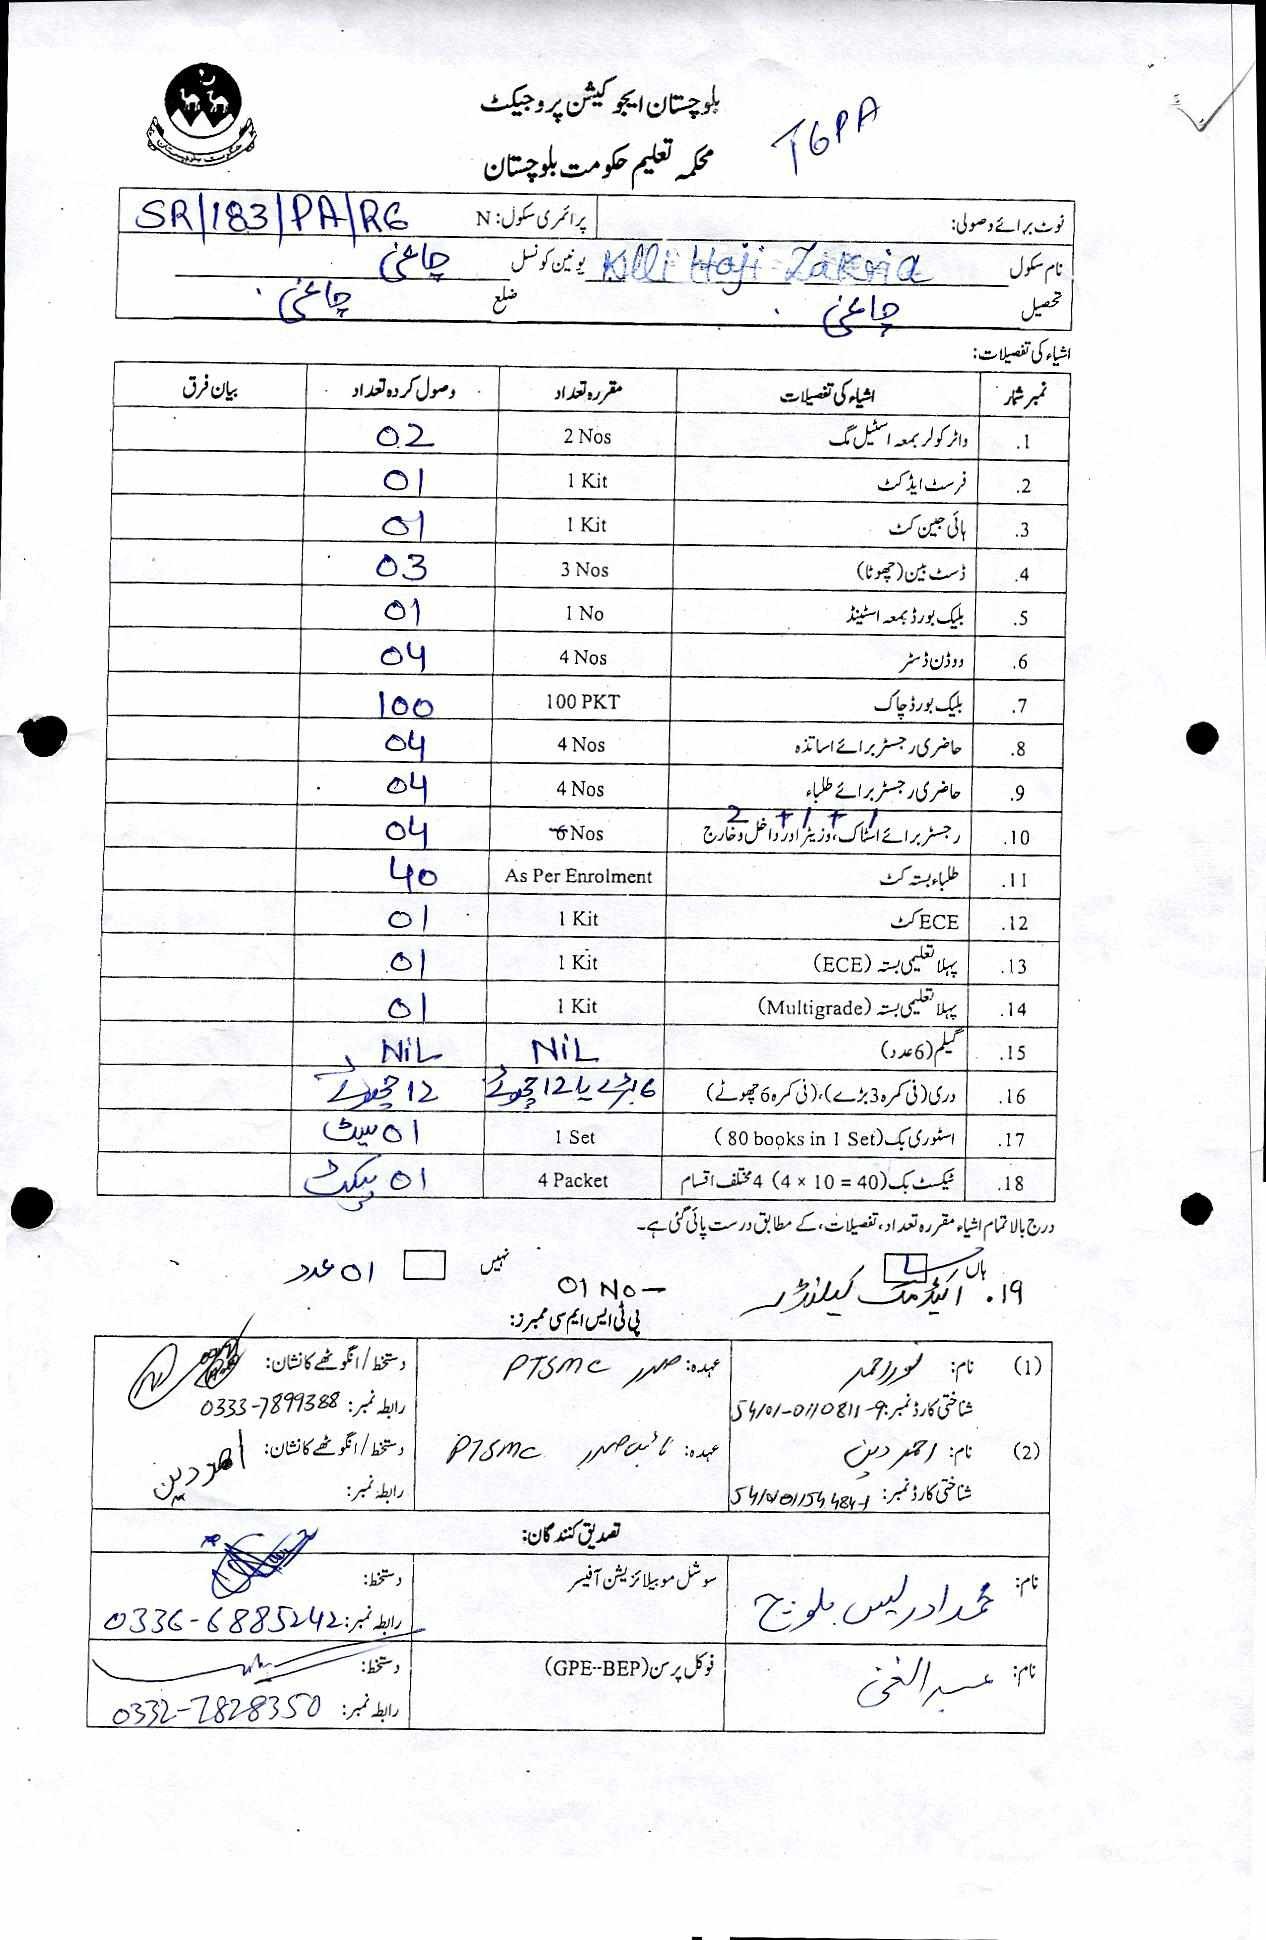 بلوچستان ایجوکیشن پروجیکٹ
محکمہ تعلیم حکومت بلوچستان
TGPA
حکومت بلوچستان
نوٹ برائے وصولی: پرائمری سکول: N SR/183/PA/RG
نام سکول Killi Haji Zakria یونین کونسل چاغی
تحصیل چاغی ضلع چاغی
اشیاء کی تفصیلات:
نمبر شمار اشیاء کی تفصیلات مقررہ تعداد وصول کردہ تعداد بیان فرق
1. واٹر کولر بمعہ اسٹیل مگ 2 Nos 02
2. فرسٹ ایڈ کٹ 1 Kit 01
3. ہائی جین کٹ 1 Kit 01
4. ڈسٹ بین (چھوٹا) 3 Nos 03
5. بلیک بورڈ بمعہ اسٹینڈ 1 No 01
6. ووڈن ڈسٹر 4 Nos 04
7. بلیک بورڈ چاک 100 PKT 100
8. حاضری رجسٹر برائے اساتذہ 4 Nos 04
9. حاضری رجسٹر برائے طلباء 4 Nos 04
2 + 1 + 1
10. رجسٹر برائے اسٹاک، وزیٹر اور داخل و خارج 6 Nos 04
11. طلباء بستہ کٹ As Per Enrolment 40
12. ECE کٹ 1 Kit 01
13. پہلا تعلیمی بستہ (ECE) 1 Kit 01
14. پہلا تعلیمی بستہ (Multigrade) 1 Kit 01
15. گلیم (6 عدد) NiL NiL
16. دری (فی کمرہ 3 بڑے)، (فی کمرہ 6 چھوٹے) 6 بڑے یا 12 چھوٹے 12 چھوٹے
17. اسٹوری بک (80 books in 1 Set) 1 Set 01 سیٹ
18. ٹیکسٹ بک (4 × 10 = 40) 4 مختلف اقسام 4 Packet 01 پیکٹ
درج بالا تمام اشیاء مقررہ تعداد، تفصیلات، کے مطابق درست پائی گئی ہے۔
ہاں نہیں
۱۹. اکیڈمک کیلنڈر 01 No - 01 عدد
پی ٹی ایس ایم سی ممبرز:
(1) نام: نور احمد عہدہ: صدر PTSMC دستخط/انگوٹھے کا نشان:
شناختی کارڈ نمبر: 54101-0110811-9 رابطہ نمبر: 0333-7899388
(2) نام: احمد دین عہدہ: نائب صدر PTSMC دستخط/انگوٹھے کا نشان: احمد دین
شناختی کارڈ نمبر: رابطہ نمبر:
تصدیق کنندگان:
نام: محمد ادریس بلوچ سوشل موبیلائزیشن آفیسر دستخط:
رابطہ نمبر: 0336-6885242
نام: عبدالغنی فوکل پرسن (GPE--BEP) دستخط:
رابطہ نمبر: 0332-7828350